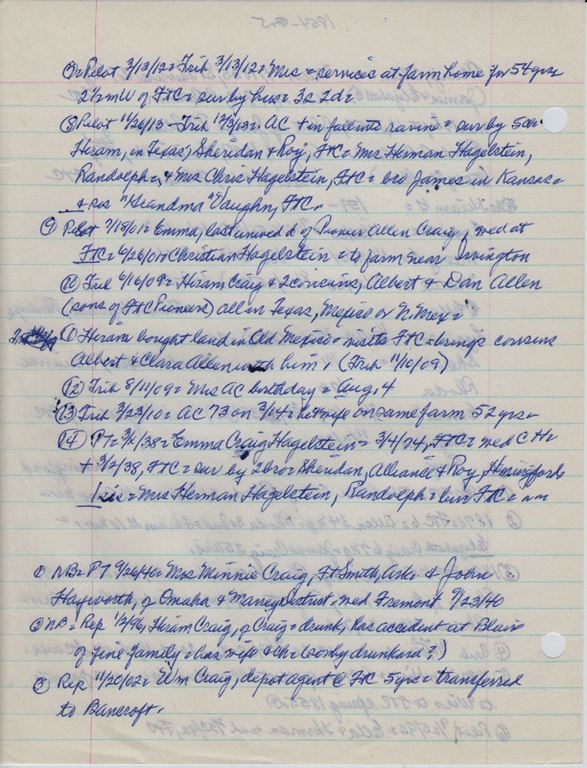 Pilot 3/13/12 = Trib 3/13/12 = Mrs = services at farm home for 54 yrs
2½ mi W of FtC = sur by hus = 3s 2d =
⑧ Pilot 11/26/13 - Trib 12/3/13 = AC + in falls into ravine = sur by 5ch =
Hiram, in Texas, Sheridan & Roy, FtC = Mrs Herman Hagelstein,
Randolph =, & Mrs Chris Hagelstein, FtC = bro James in Kansas =
& sis "Grandma" Vaughn, FtC =
⑨ Pilot 7/18/01 = Emma, last unwed d of Pioneer Allen Craig, med at
FtC = 6/26/01 = Christian Hagelstein = to farm near Irvington
⑩ Trib 6/16/08 = Hiram Craig & 2 cousins, Albert & Dan Allen
(sons of FtC Pioneers) all in Texas, Mexico or N. Mex =
⑪ Hiram bought land in Old Mexico = visits FtC = brings cousins
Albert & Clara Allen with him, (Trib 11/10/09)
⑫ Trib 8/11/09 = Mrs AC birthday = Aug. 4
⑬ Trib 3/23/10 = AC 73 on 3/14 = he & wife on same farm 52 yrs =
⑭ PT = 3/4/38 = Emma Craig Hagelstein = 3/4/74, FtC = med C H =
+ 3/2/38, FtC = sur by 2 bro = Sheridan, Alliance & Roy, Hemingford
1 sis = Mrs Herman Hagelstein, Randolph = bur FtC =
① NB = PT 9/26/40 = Mrs Minnie Craig, Ft Smith, Ark = & John
Hayworth, of Omaha & Marney District = med Fremont 9/23/40
② NB = Rep 1/2/96, Hiram Craig, of Craig = drunk, has accident at Blair
of fine family = has wife & ch = (sorry drunkard?)
③ Rep 11/20/02 = Wm Craig, depot agent @ FtC 5 yrs = transferred
to Bancroft.